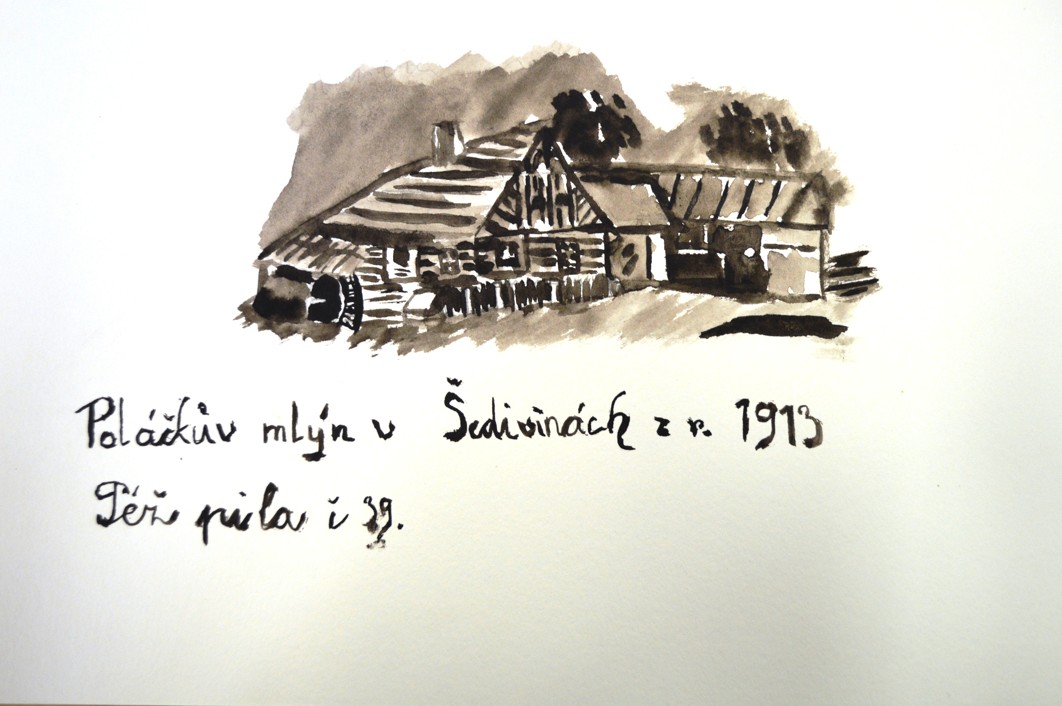 Poláčkův mlýn v Šedivinách z r. 1913
Též pila č 39.